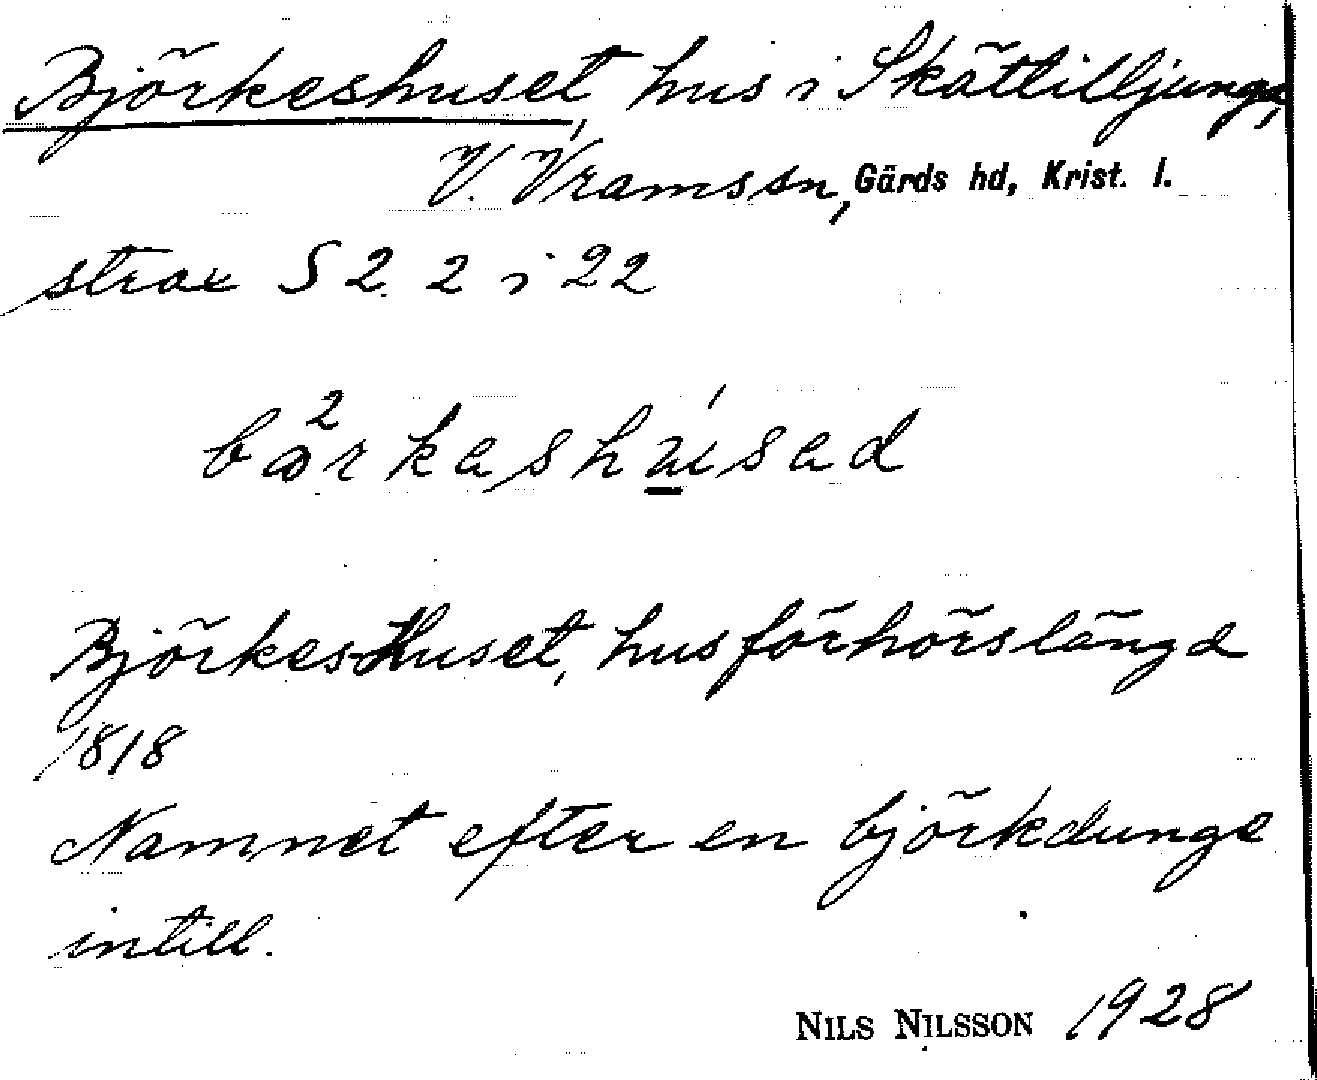 Björkeshuset, hus i Skättilljunga,
V. Vramssn, Gärds hd, Krist. l.
strax S 2. 2 i 22
Björkeshuset, husförhörslängd
1818
Namnet efter en björkdunge
intill.
NILS NILSSON 1928